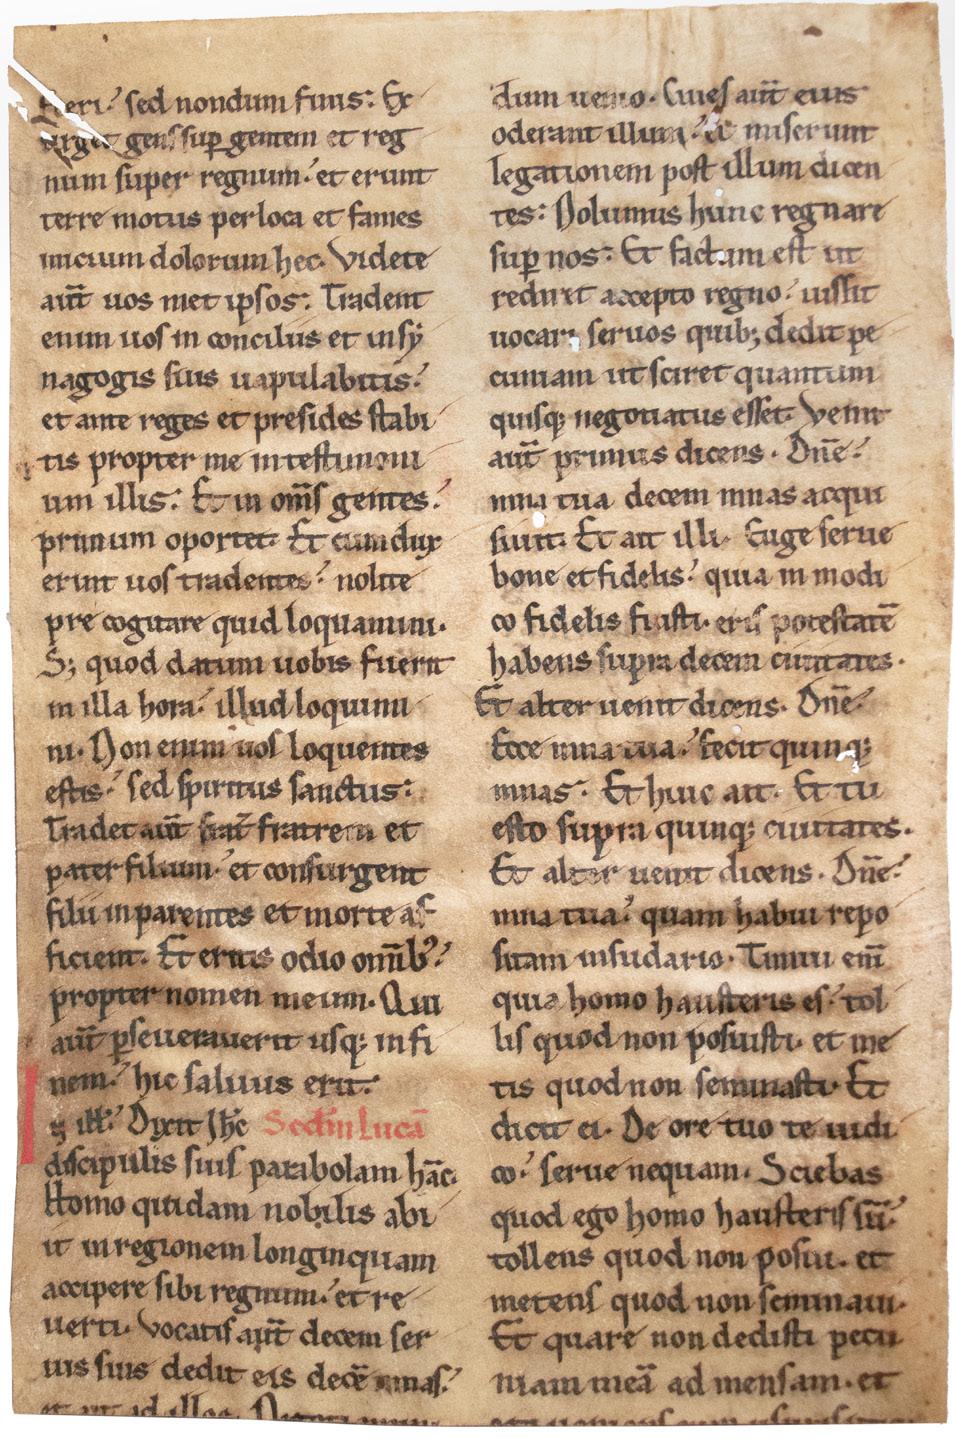 fieri. sed nondum finis: Ex
urget gens sup̱ gentem et reg
num super regnum. et erunt
terre motus per loca et fames
inicium dolorum hec. Videte
aut̄ uos met ipsos: Tradent
enim uos in conciliis et in sẏ
nagogis suis uapulabitis.
et ante reges et presides stabi
tis propter me in testimoni
um illis: Et in om̄s gentes.
primum oportet. Et cum dux
erint uos tradentes. nolite
pre cogitare quid loquamini.
S; quod datum uobis fuerit
in illa hora. illud loquimi
ni. Non enim uos loquentes
estis. sed spiritus sanctus:
Tradet aut̄ frat̄ fratrem et
pater filium. et consurgent
filii in parentes et morte af
ficient. Et eritis odio omīb᾽.
propter nomen meum. Qui
aut̄ p̱seuerauerit usq; in fi
nem. hic saluus erit.
In ill̄. Dixit Ih̄c Scd̄m Lucā
discipulis suis parabolam hāc.
Homo quidam nobilis abi
it in regionem longinquam
accipere sibi regnum. et re
uerti. Vocatis aut̄ decem ser
uis suis dedit eis decē mnas.
et ait ad illos. Negotiamini
dum uenio. Ciues aut̄ eius
oderant illum. et miserunt
legationem post illum dicen
tes: Nolumus hunc regnare
sup̱ nos: Et factum est ut
rediret accepto regno. iussit
uocari seruos quib; dedit pe
cuniam ut sciret quantum
quisq; negotiatus esset. Venit
aut̄ primus dicens. Dn̄e.
mna tua decem mnas acqui
siuit. Et ait illi. Euge serue
bone et fidelis. quia in modi
co fidelis fuisti. eris potestatē
habens supra decem ciuitates.
Et alter uenit dicens. Dn̄e.
Ecce mna tua. fecit quinq;
mnas. Et huic ait. Et tu
esto supra quinq; ciuitates.
Et alter uenit dicens. Dn̄e.
mna tua. quam habui repo
sitam in sudario. Timui eni̅
quia homo hausteris es. tol
lis quod non posuisti. et me
tis quod non seminasti. Et
dicit ei. De ore tuo te iudi
co. serue nequam. Sciebas
quod ego homo hausteris su̅.
tollens quod non posui. et
metens quod non seminaui.
Et quare non dedisti pecu
niam meā ad mensam. et